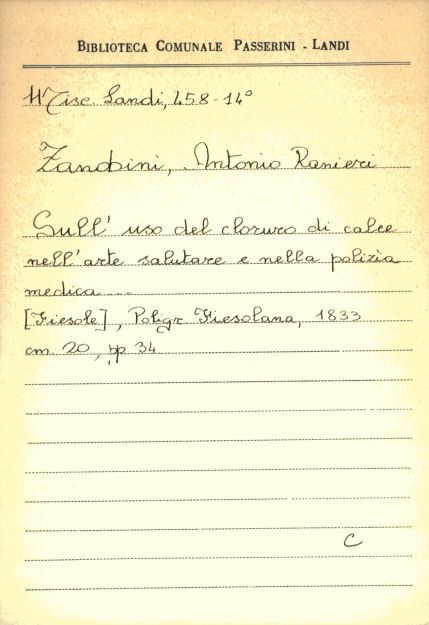 BIBLIOTECA COMUNALE PASSERINI - LANDI
Misc. Landi, 458-14°
Zanobini, Antonio Ranieri
Sull' uso del cloruro di calce
nell'arte salutare e nella polizia
medica ...
[Fiesole], Poligr. Fiesolana, 1833
cm. 20, pp 34
C